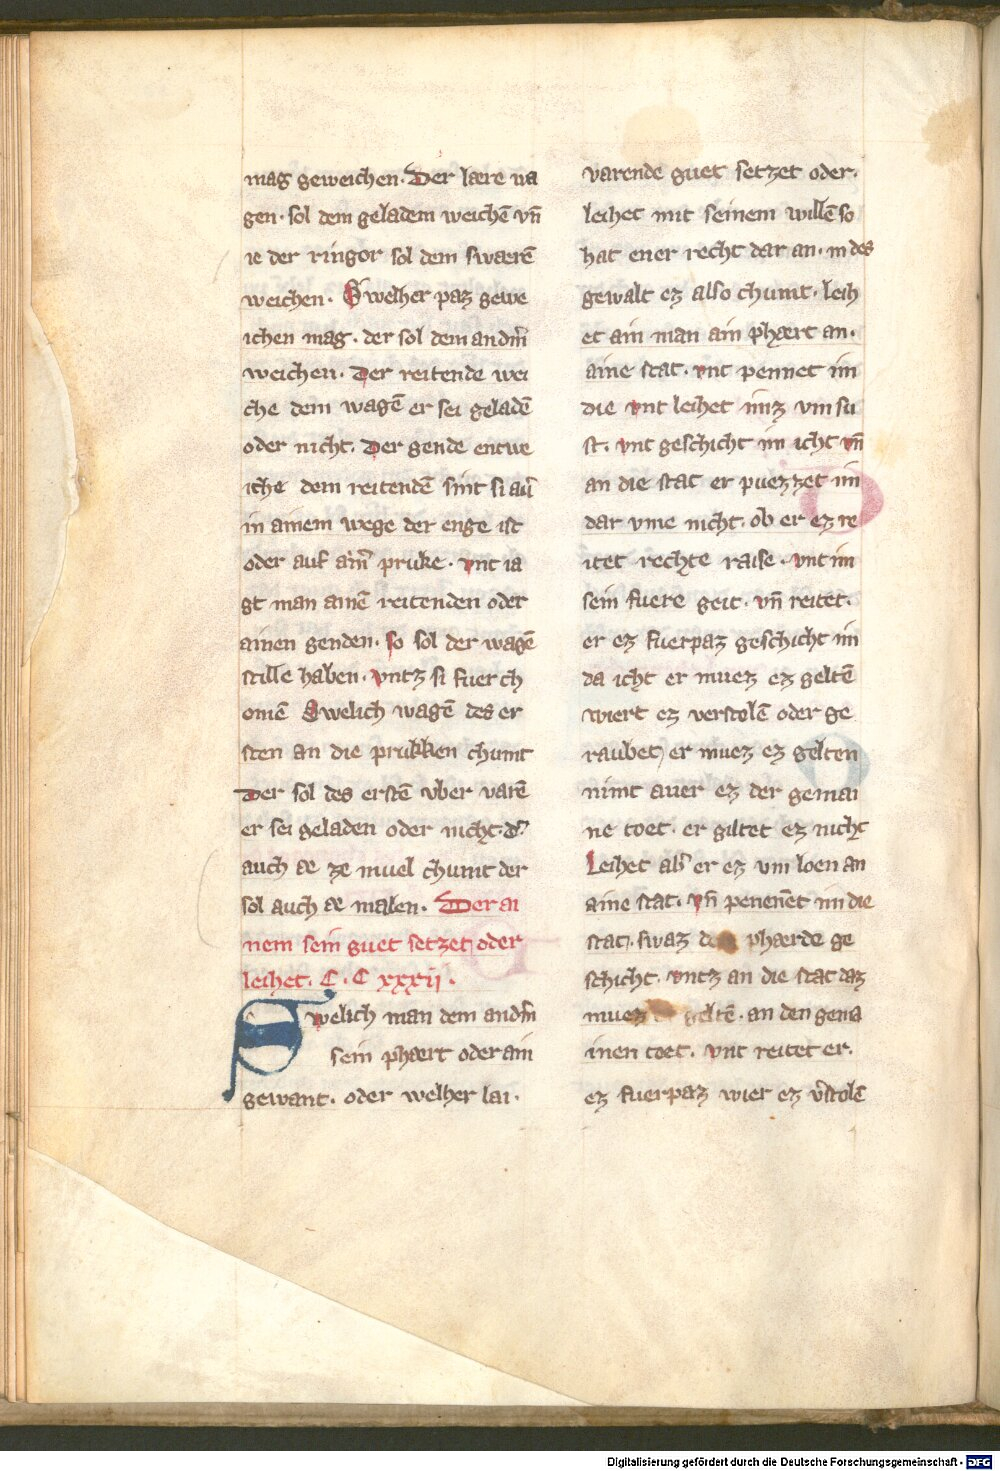 mag geweichen. Der lære wa
gen. sol dem geladem weichē vn̄
ie der ringor sol dem swærē
weichen. Swelher paz gewe
ichen mag. der sol dem andm̄
weichen. Der reitende wei
che dem wagē er sei geladē
oder nicht. Der gende entwe
iche dem reitendē sint si auͦ
in ainem wege der enge ist
oder auf aim̄ pruke. vnt ia
gt man ainē reitenden oder
ainen genden. so sol der wagē
stille haben. vntz si fuer ch
omē Swelich wagē des er
sten an die prukken chumt
Der sol des erstē vber varē
er sei geladen oder nicht. d͛
auch æ ze muel chumt der
sol auch æ malen. Der ai
nem sein guet setzet oder
leihet. C. C xxxii.
Swelich man dem andm̄
sein phært oder ain
gewant. oder welher lai.
varende guet setzet oder.
leihet mit seinem willē so
hat ener recht dar an. in des
gewalt ez also chumt. leih
et ain man ain phært an.
aine stat. vnt pennet im
die vnt leihet imz vm su
st. vnt geschicht im icht vn̄
an die stat er puezzet im
dar vme nicht. ob er ez re
itet rechte raise. vnt im
sein fuere geit. vn̄ reitet.
er ez fuerpaz geschicht im
da icht er muez ez geltē
wiert ez verstolē oder ge
raubet, er muez ez gelten
nimt auer ez der gemai
ne toet. er giltet ez nicht
Leihet als er ez vm loen an
aine stat. vn̄ penenēt im die
stat. swaz phærde ge
schicht. vntz an die stat daz
muez geltē. an den gema
inen toet. vnt reitet er.
ez fuerpaz wier ez v̄stolē
Digitalisierung gefördert durch die Deutsche Forschungsgemeinschaft - DFG